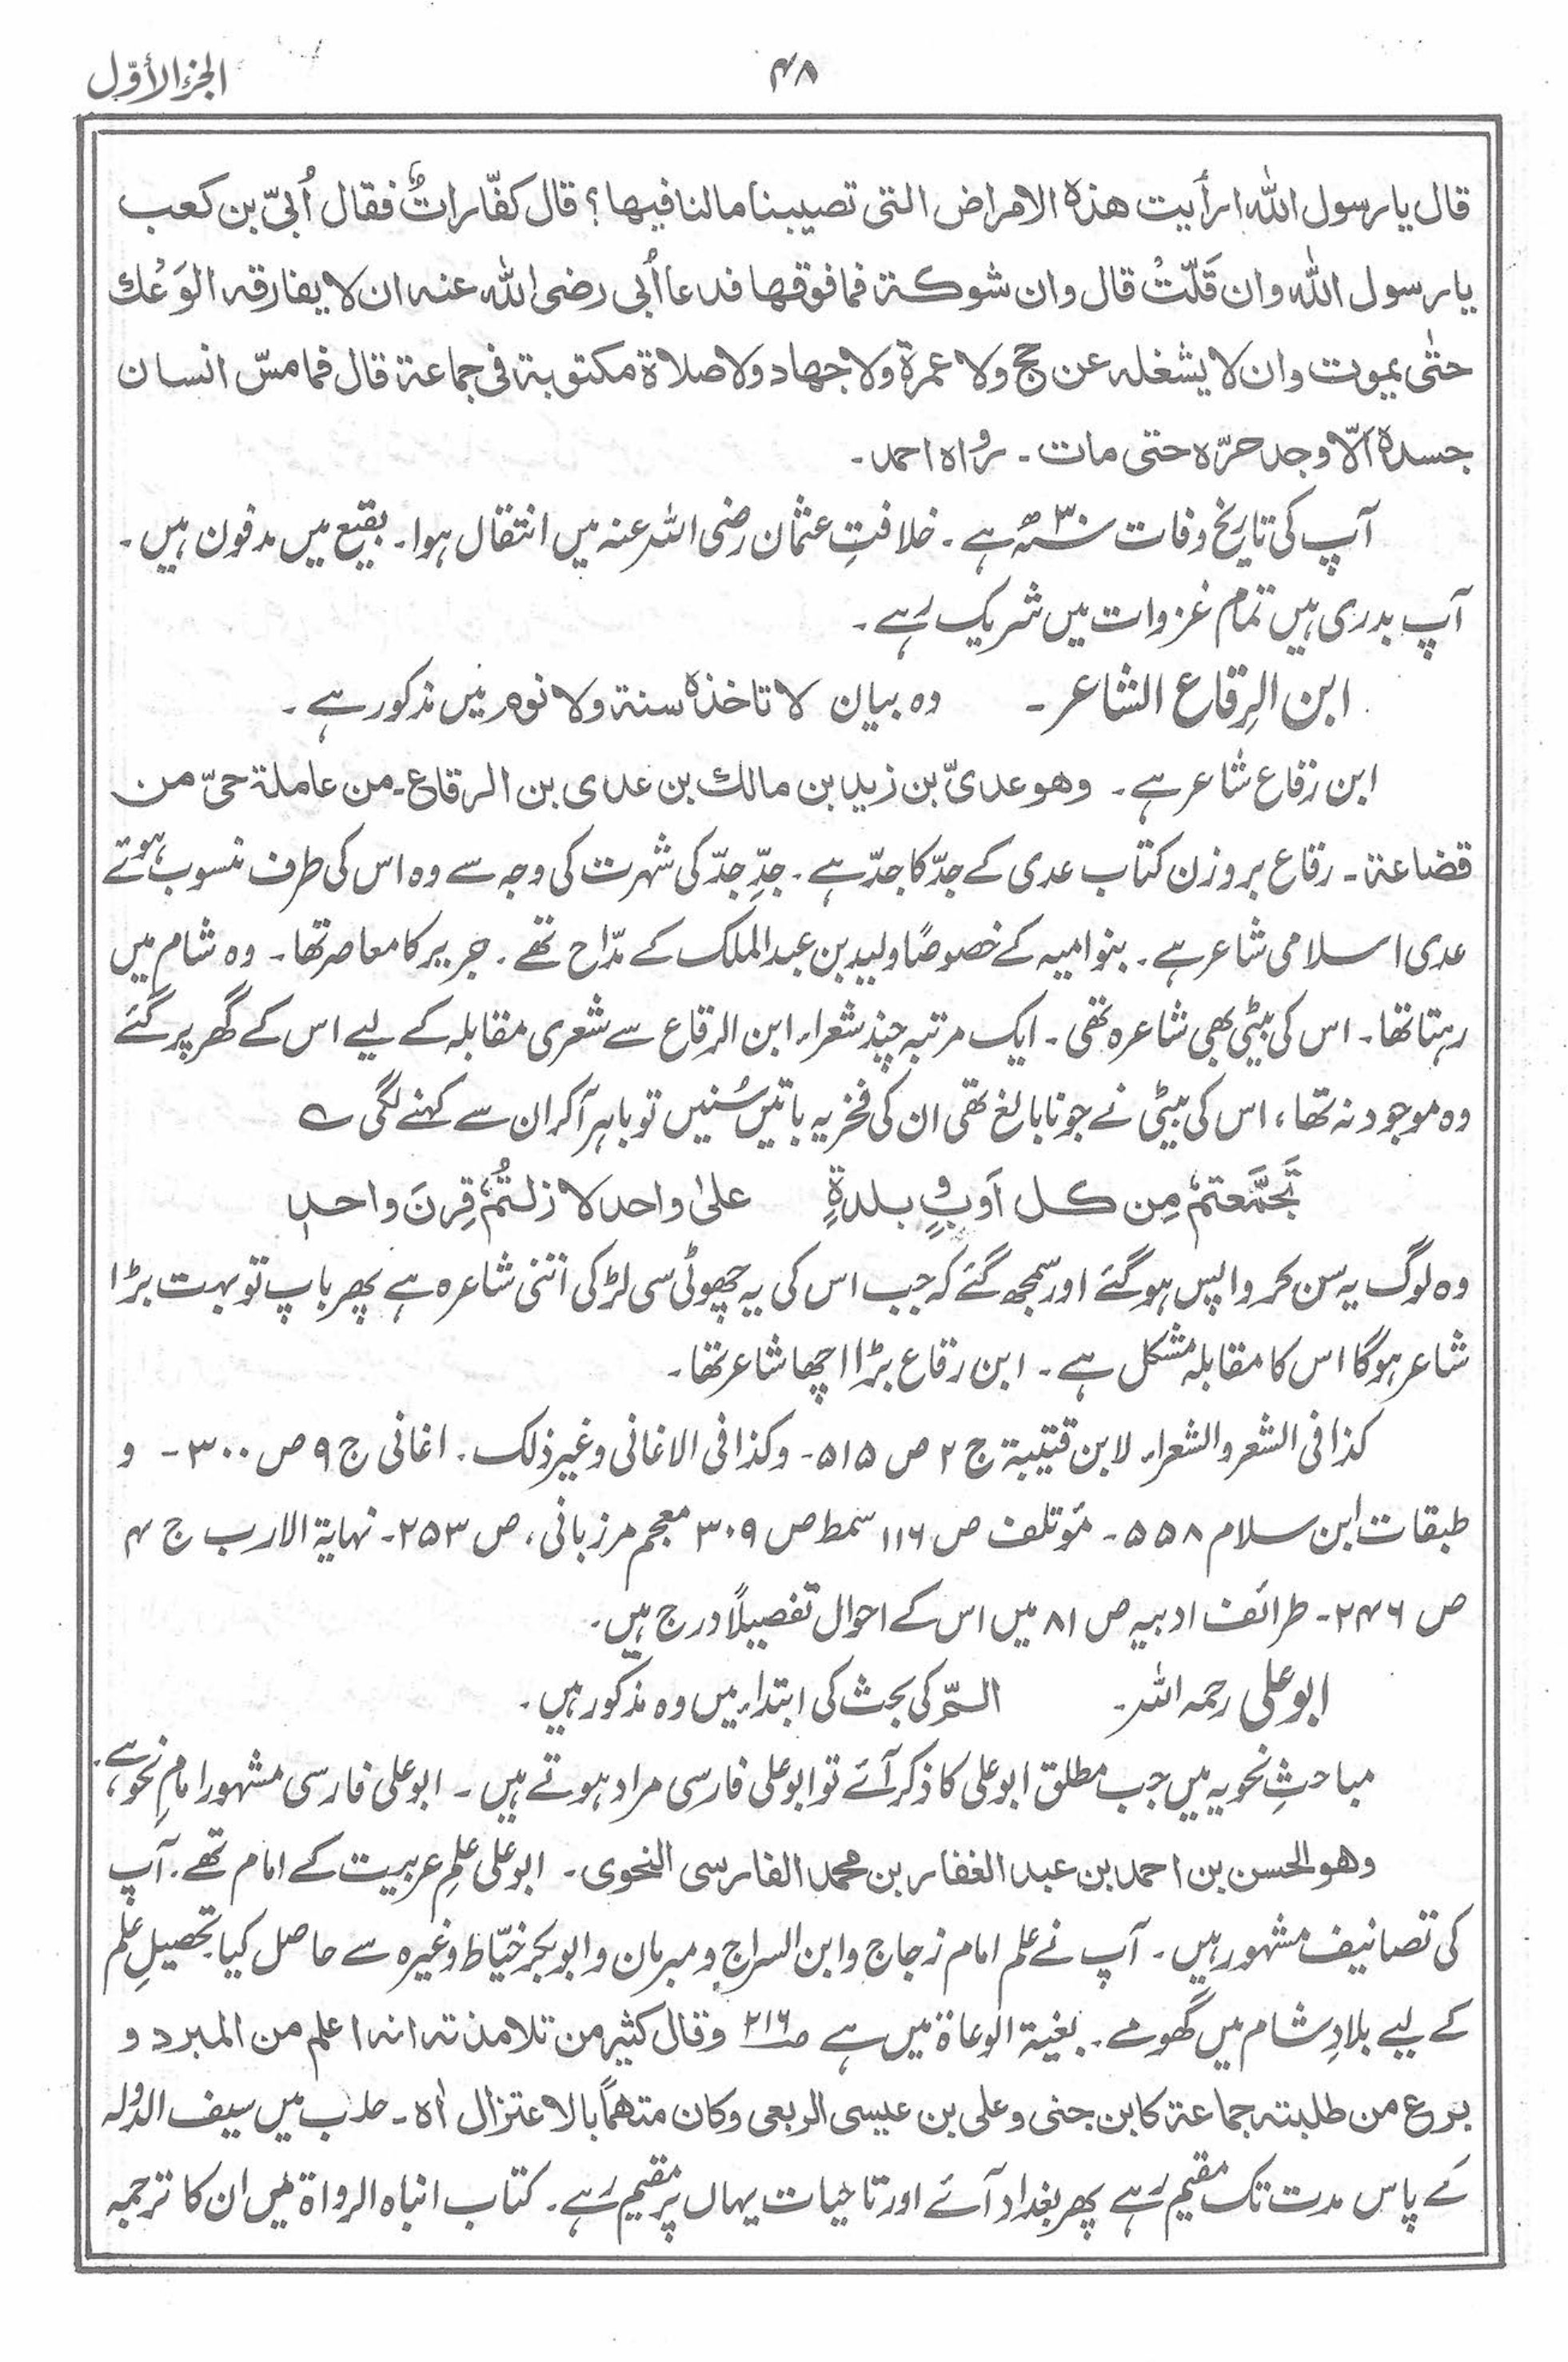 الجزء الأوّل
۴۸
قال یا رسول اللہ ارأیت هذه الامراض التی تصیبنا مالنا فیها؟ قال کفّارات فقال اُبیّ بن کعب
یا رسول اللہ وان قَلّتْ قال وان شوکة فما فوقها فدعا اُبی رضی اللہ عنه ان لا یفارقه الوَعْك
حتٰی یموت وان لا یشغله عن حج ولا عمرة ولا جهاد ولا صلاة مکتوبة فی جماعة قال فما مسّ انسان
جسده الّا وجد حرّه حتی مات ۔ رواه احمد ۔
آپ کی تاریخ وفات سنہ ۳۰ھ ہے ۔ خلافتِ عثمان رضی اللہ عنہ میں انتقال ہوا۔ بقیع میں مدفون ہیں ۔
آپ بدری ہیں تمام غزوات میں شریک رہے ۔
ابن الرِقاع الشاعر ۔ وہ بیان لا تاخذه سنة ولا نوم میں مذکور ہے ۔
ابن رقاع شاعر ہے ۔ وهو عدیّ بن زید بن مالك بن عدی بن الرقاع ۔ من عاملة حیّ من
قضاعة ۔ رقاع بروزن کتاب عدی کے جدّ کا جدّ ہے ۔ جدِّ جدّ کی شہرت کی وجہ سے وہ اس کی طرف منسوب ہوتے
عدی اسلامی شاعر ہے ۔ بنو امیہ کے خصوصًا ولید بن عبدالملک کے مدّاح تھے ۔ جریر کا معاصر تھا ۔ وہ شام میں
رہتا تھا ۔ اس کی بیٹی بھی شاعرہ تھی ۔ ایک مرتبہ چند شعراء ابن الرقاع سے شعری مقابلہ کے لیے اس کے گھر پر گئے
وہ موجود نہ تھا ، اس کی بیٹی نے جو نابالغ تھی ان کی فخریہ باتیں سُنیں تو باہر آ کر ان سے کہنے لگی ؎
تَجَمَّعتم مِن کل اَوبٍ و بلدةٍ علیٰ واحد لا زلتُم قِرنَ واحدٖ
وہ لوگ یہ سن کر واپس ہو گئے اور سمجھ گئے کہ جب اس کی یہ چھوٹی سی لڑکی اتنی شاعرہ ہے پھر باپ تو بہت بڑا
شاعر ہوگا اس کا مقابلہ مشکل ہے ۔ ابن رقاع بڑا اچھا شاعر تھا ۔
کذا فی الشعر والشعراء لابن قتیبة ج ۲ ص ۵۱۵ ۔ وکذا فی الاغانی وغیر ذلک ۔ اغانی ج ۹ ص ۳۰۰ ۔ و
طبقات ابن سلام ۵۵۸ ۔ مؤتلف ص ۱۱۶ سمط ص ۳۰۹ معجم مرزبانی ، ص ۲۵۳ ۔ نہایۃ الارب ج ۴
ص ۲۴۶ ۔ طرائف ادبیہ ص ۸۱ میں اس کے احوال تفصیلًا درج ہیں ۔
ابو علی رحمہ اللہ ۔ الٓمّٓ کی بحث کی ابتداء میں وہ مذکور ہیں ۔
مباحثِ نحویہ میں جب مطلق ابو علی کا ذکر آئے تو ابو علی فارسی مراد ہوتے ہیں ۔ ابو علی فارسی مشہور امامِ نحو ہے ،
وهو الحسن بن احمد بن عبد الغفار بن محمد الفارسی النحوی ۔ ابو علی علمِ عربیت کے امام تھے ۔ آپ
کی تصانیف مشہور ہیں ۔ آپ نے علم امام زجاج وابن السراج و مبرمان وابوبکر خیّاط وغیرہ سے حاصل کیا تحصیلِ علم
کے لیے بلادِ شام میں گھومے ۔ بغیۃ الوعاۃ میں ہے ص ۲۱۶ وقال کثیر من تلامذته انه اعلم من المبرد و
برع من طلبته جماعة کابن جنی وعلی بن عیسی الربعی وکان متهمًا بالاعتزال اھ ۔ حلب میں سیف الدولہ
کے پاس مدت تک مقیم رہے پھر بغداد آئے اور تا حیات یہاں پر مقیم رہے ۔ کتاب انباہ الرواۃ میں ان کا ترجمہ